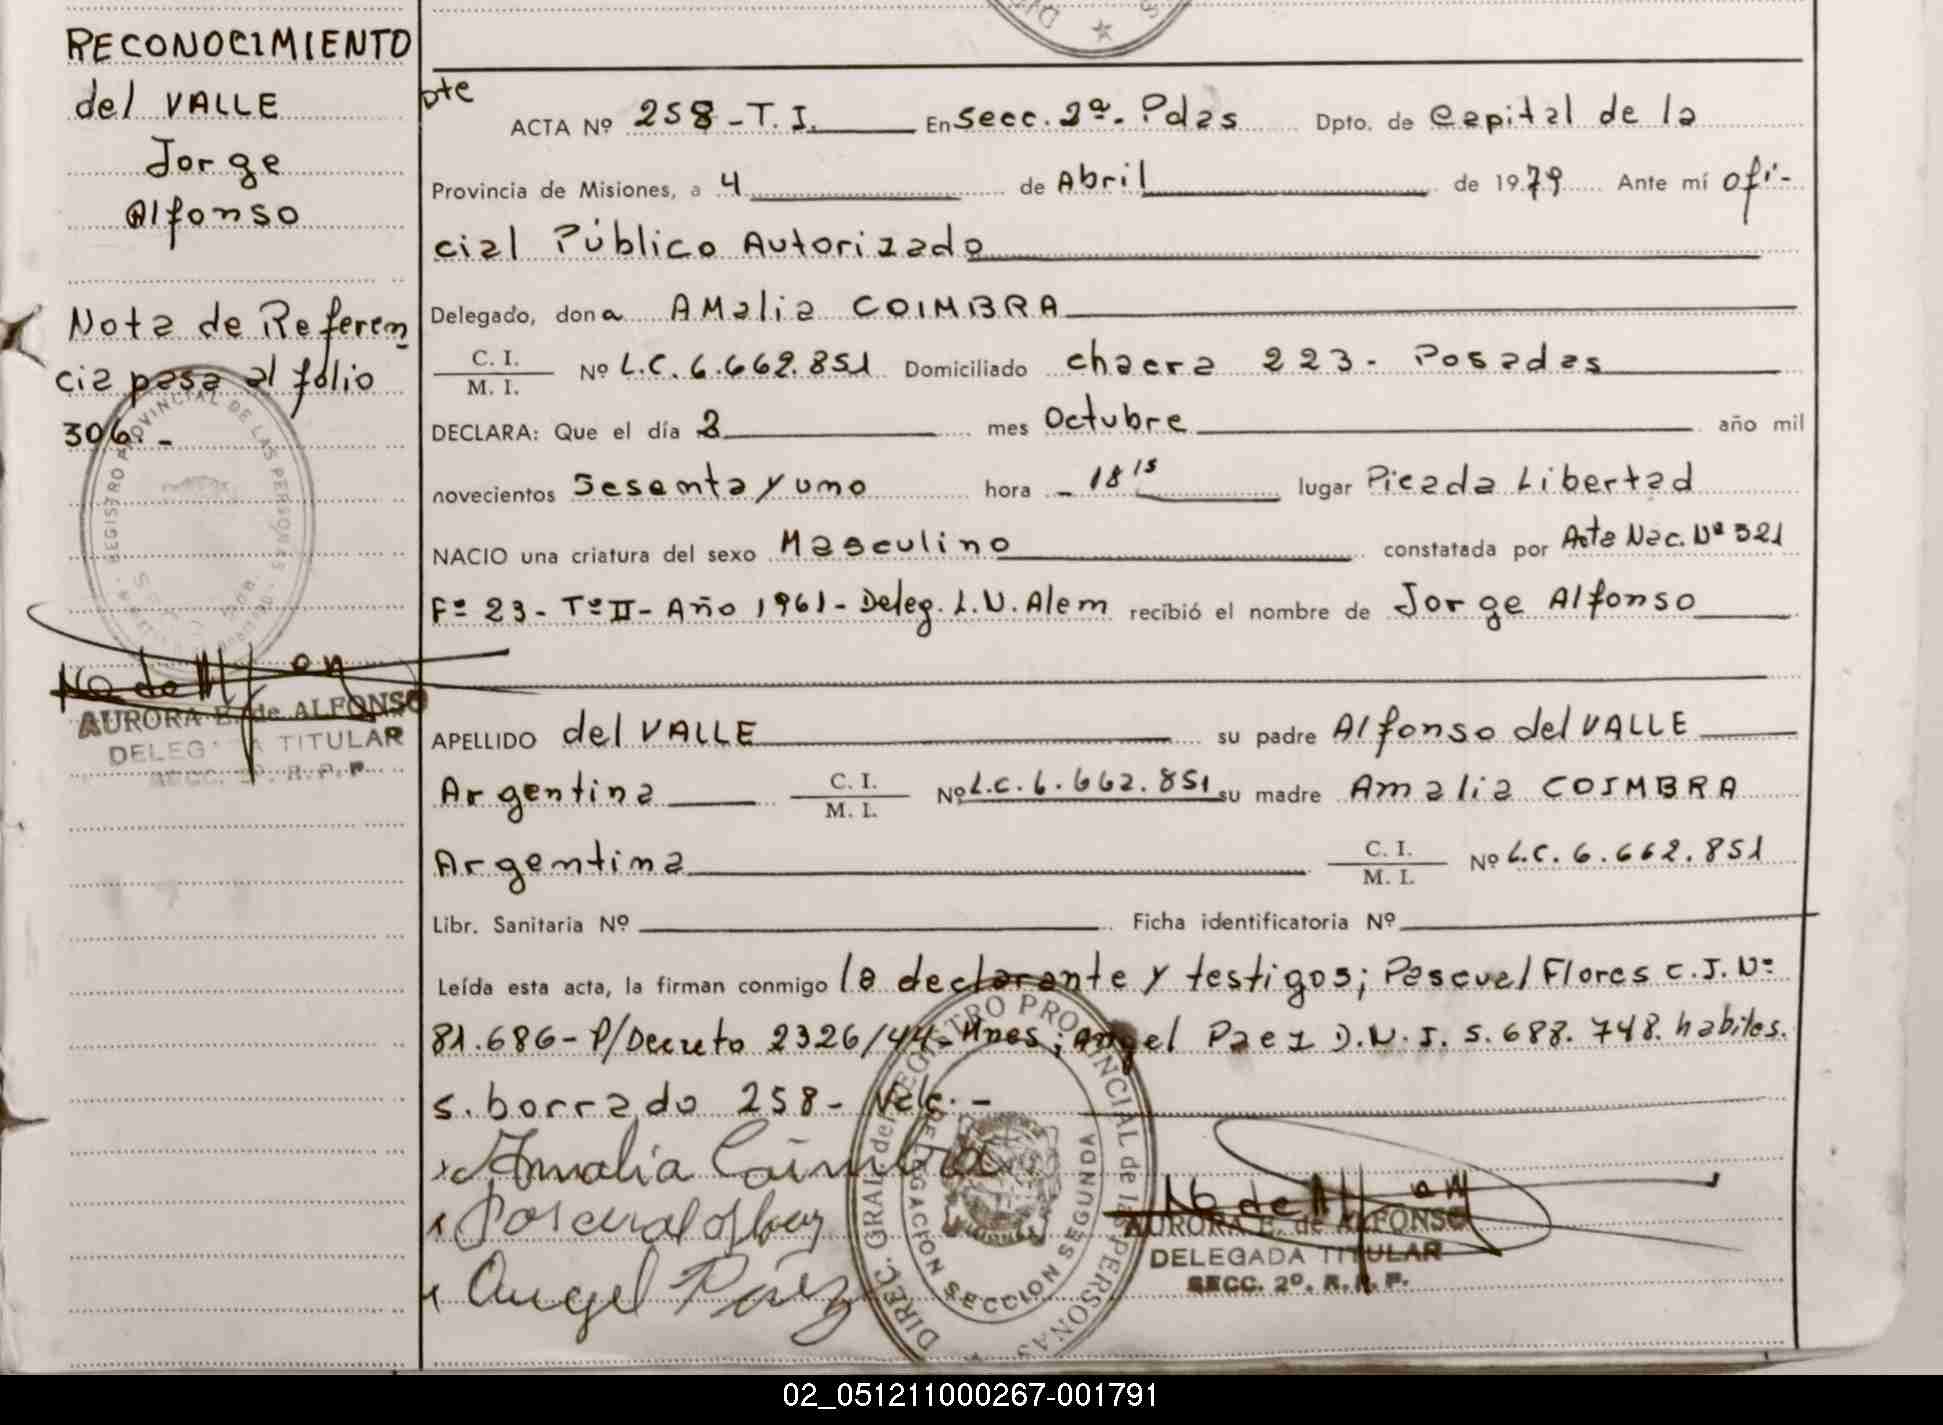 RECONOCIMIENTO
del VALLE
Jorge
Alfonso
Nota de Referen
cia pasa al folio
306.-
REGISTRO PROVINCIAL DE LAS PERSONAS
AURORA E. de ALFONSO
DELEGADA TITULAR
SECC. 2º. R.P.P.
Dte
ACTA Nº 258-T.I. En Secc. 2ª. Pdas Dpto. de Capital de la
Provincia de Misiones, a 4 de Abril de 1979 Ante mí ofi-
cial Público Autorizado
Delegado, dona AMalia COIMBRA
C. I. / M. I. Nº L.C. 6.662.851 Domiciliado chacra 223- Posadas
DECLARA: Que el día 2 mes Octubre año mil
novecientos Sesenta y uno hora - 18 15 lugar Picada Libertad
NACIO una criatura del sexo Masculino constatada por Acta Nac. Nº 321
Fº 23- Tº II- Año 1961- Deleg. L.N. Alem recibió el nombre de Jorge Alfonso
APELLIDO del VALLE su padre Alfonso del VALLE
Argentina C. I. / M. I. Nº L.C. 6.662.851 su madre Amalia COIMBRA
Argentina C. I. / M. I. Nº L.C. 6.662.851
Libr. Sanitaria Nº Ficha identificatoria Nº
Leída esta acta, la firman conmigo la declarante y testigos; Pascual Flores C.I. Nº
81.686- P/Decreto 2326/44- Mnes; Angel Paez D.N.I. 5.688.748. habiles.
s. borrado 258- Vale.-
Amalia Coimbra
Angel Páez
DIREC. GRAL del REGISTRO PROVINCIAL de las PERSONAS
DELEGACION SECCION SEGUNDA
MISIONES
AURORA E. de ALFONSO
DELEGADA TITULAR
SECC. 2º. R.P.P.
02_051211000267-001791